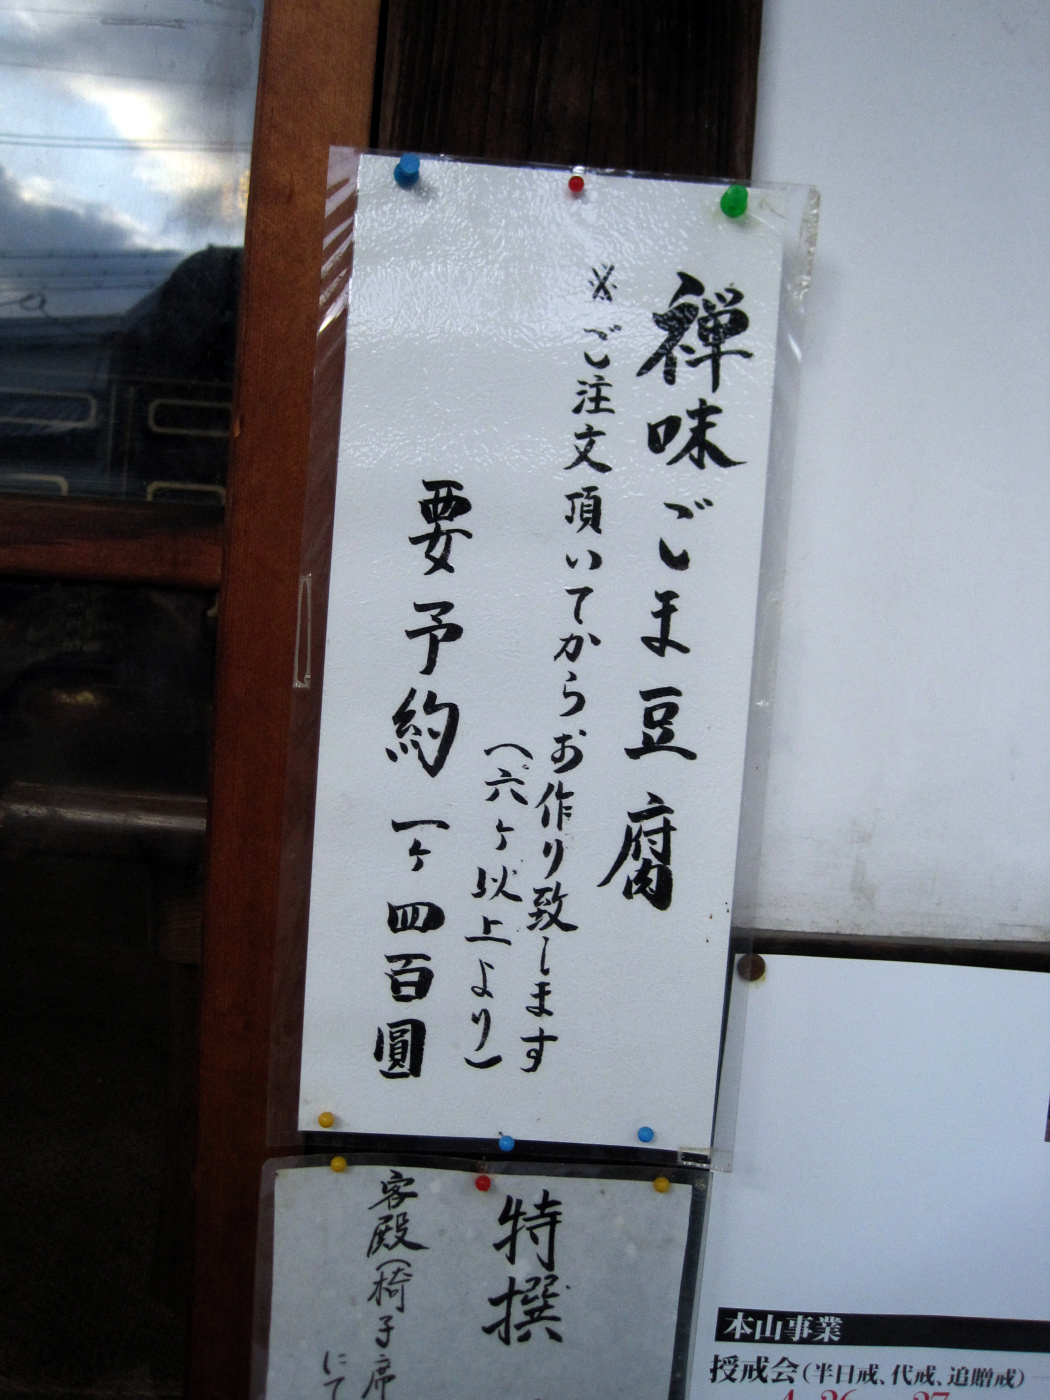 禅味ごま豆腐
※ご注文頂いてからお作り致します
(六ヶ以上より)
要予約 一ヶ四百圓
特撰
客殿(椅子席
にて
本山事業
授戒会(半日戒、代戒、追贈戒)